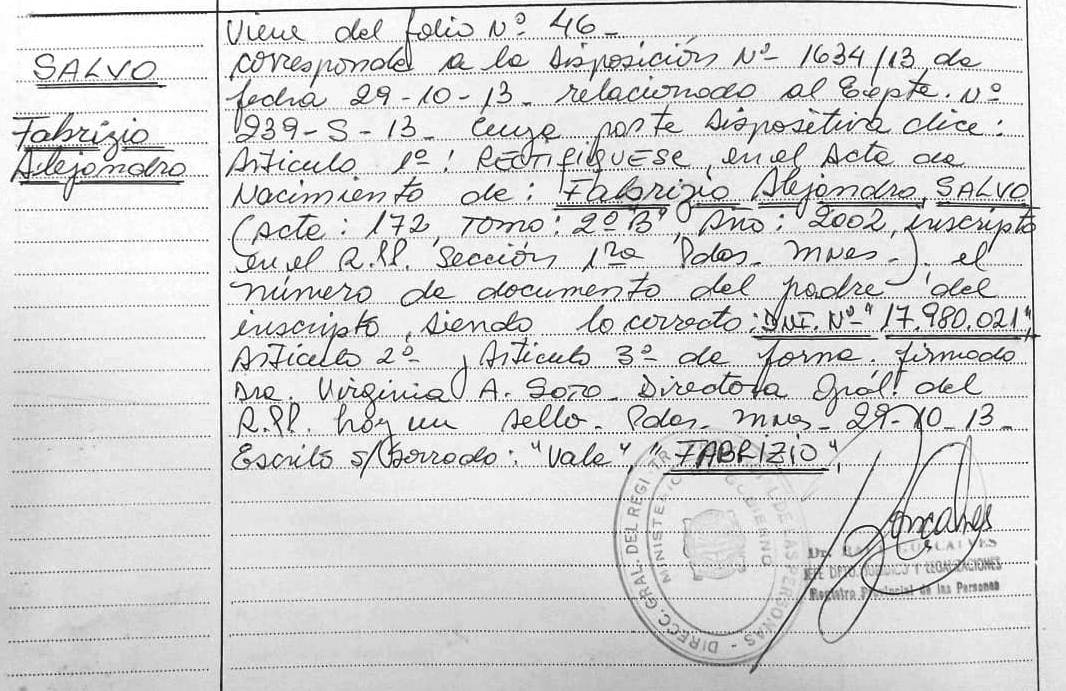 SALVO
Fabrizio
Alejandro
Viene del folio Nº 46-
corresponde a la Disposición Nº 1634/13 de
fecha 29-10-13- relacionado al Expte. Nº
239-S-13- cuya parte Dispositiva dice:
Artículo 1º: RECTIFIQUESE en el Acta de
Nacimiento de: Fabrizio Alejandro SALVO
(Acta: 172, Tomo: 2º"B", Año: 2002, inscripto
en el R.PP. Sección 1ra Pdas. Mnes.-). el
número de documento del padre del
inscripto, siendo lo correcto: "DNI. Nº" 17.980.021",
Artículo 2º y Artículo 3º de forma. firmado
Dra. Virginia A. Director Gral. del
R.PP. hay un sello- Pdas- Mnes- 29-10-13-
Escrito s/borrado: "Vale", "FABRIZIO",
DIRECC. GRAL. DEL REGISTRO DE LAS PERSONAS -
MINISTERIO GOBIERNO
Goncalves
Dr. GONCALVES
JEFE DPTO. JURIDICO Y LEGALIZACIONES
Registro Provincial de las Personas